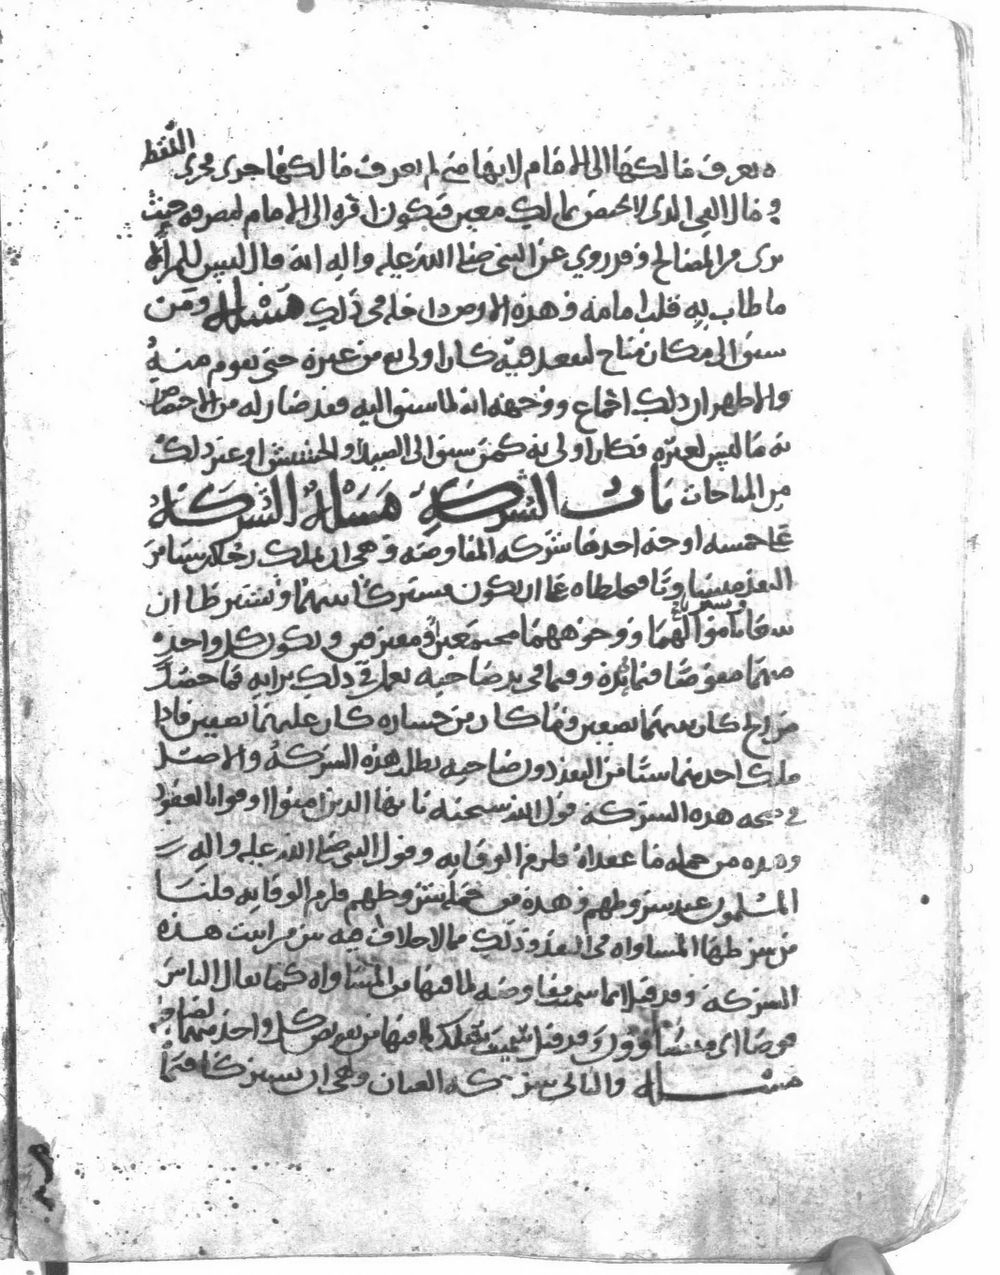 يعرف مالكها الى الامام لانها متى لم يعرف مالكها جرى مجرى اللقط
و مال الفي الذي لا يختص بمالك معين فيكون امره الى الامام ليصرفه حيث
يرى من المصالح وقد روي عن النبي صلى الله عليه واله انه قال ليس للمرء الا
ما طاب به قلب امامه و هذه الارض داخله في ذلك مسئله ومن
سبق الى مكان مباح ليقعد فيه كان اولى به من غيره حتى يقوم منه
والاظهر ان ذلك اجماع ووجهه انه لما سبق اليه فقد صار له من الاختصاص
به ما ليس لغيره فكان اولى به كمن سبق الى الصيد او الحشيش او غير ذلك
من المباحات باب الشركة مسئله الشركة
على خمسه اوجه احدها شركه المفاوضه وهي ان يملك رجلان شيئا من
النقد فيخلطاه على ان يكون مشتركا بينهما ويشترطا ان
اموالهما و وجوههما مجتمعين ومفترقين ويكون كل واحد
منهما مفوضا فيما في يده وفيما في يد صاحبه يعمل في ذلك برايه فما حصل
من ربح كان بينهما نصفين وما كان من خساره كان عليهما نصفين فاذا
ملك احدهما شيئا من النقد دون صاحبه بطل هذه الشركة والاصل
في صحه هذه الشركة قول الله سبحنه يا ايها الذين امنوا اوفوا بالعقود
وهذه من جمله ما عقداه فلزم الوفا به وقول النبي صلى الله عليه واله
المسلمون عند شروطهم و هذه من جمله شروطهم فلزم الوفا به قلنا
من شرطها المساواه في النقد وذلك مما لا خلاف فيه بين من اثبت هذه
الشركه وقد قيل انما سميت مفاوضه لما فيها من المساواه كما يقال الناس
فوضا اي وقد قيل سميت بذلك لما فيها من تفويض كل واحد منهما
مسئله والثاني شركه العنان وهي ان يشتركا فيما